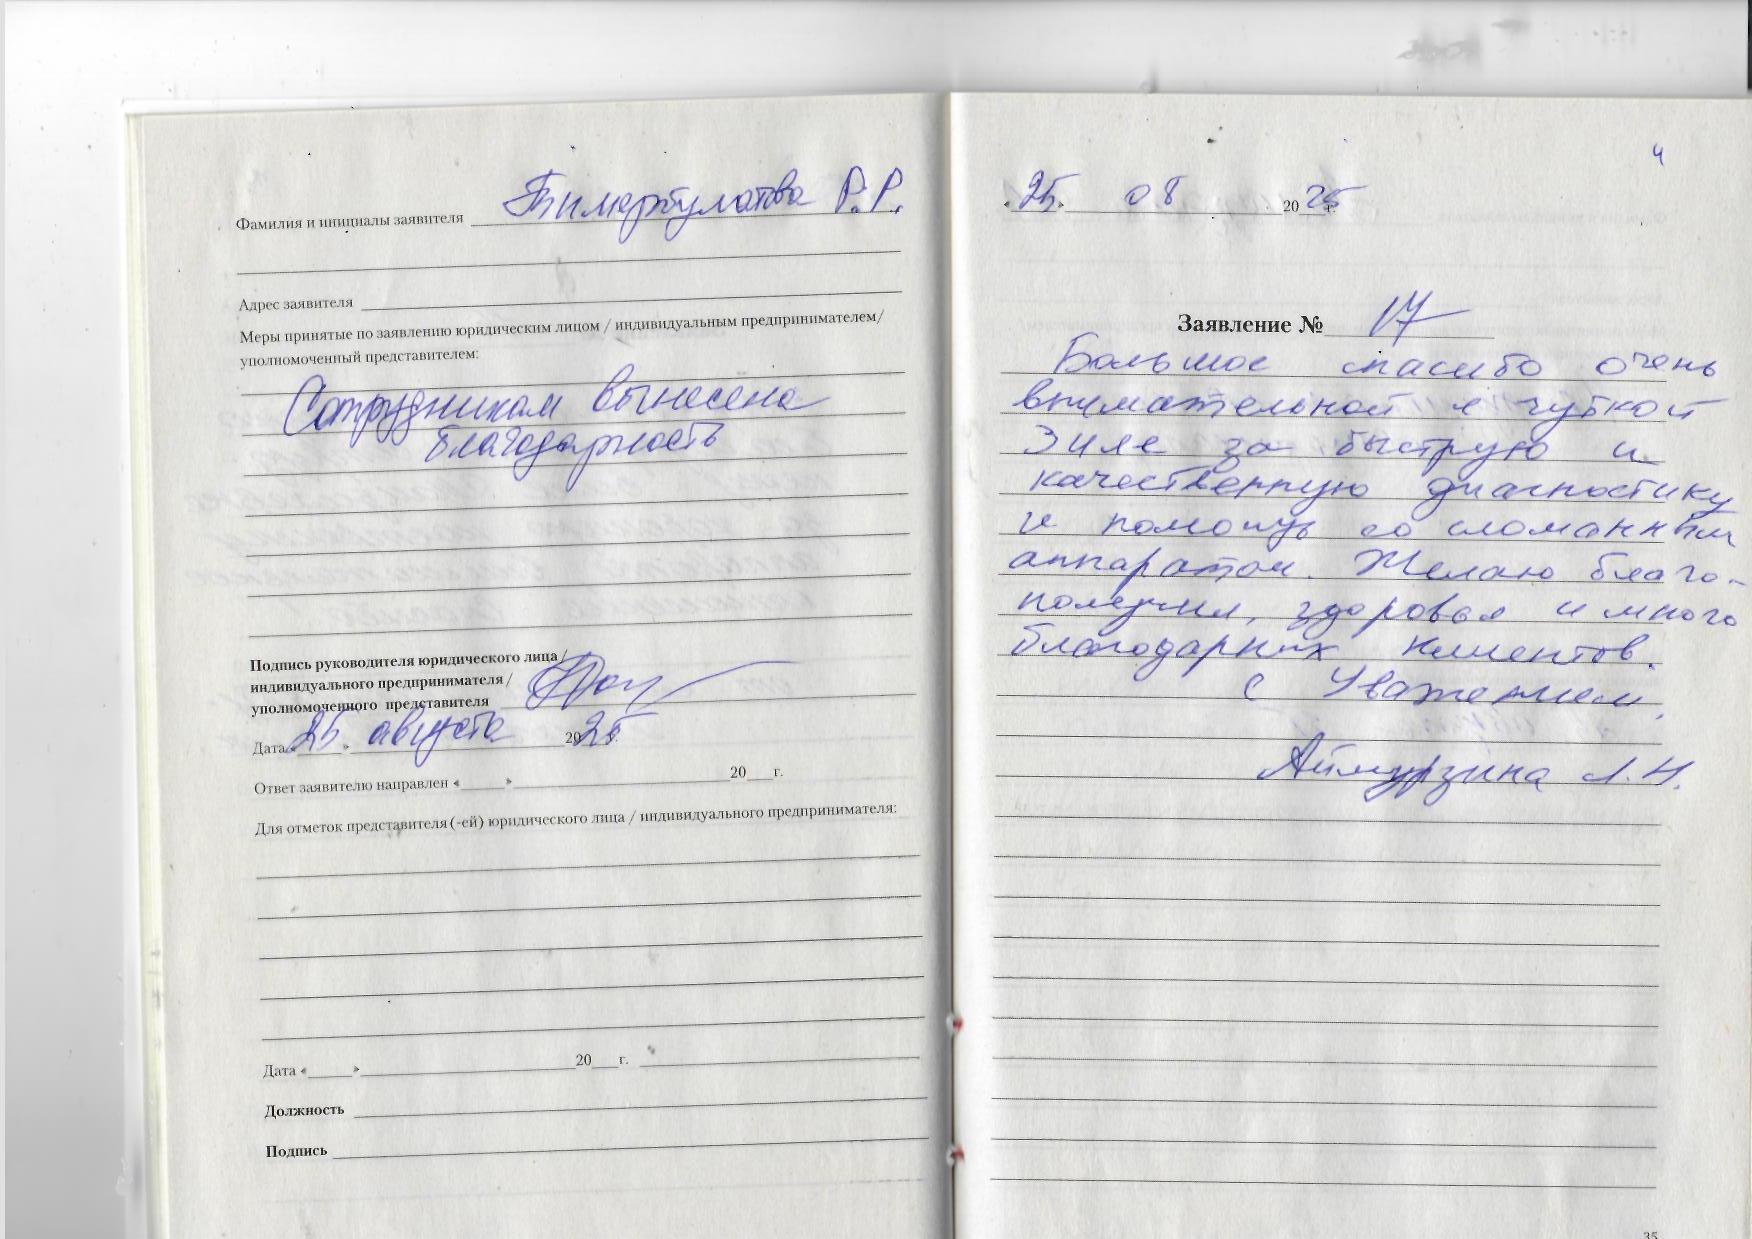 Фамилия и инициалы заявителя Тимербулатова Р.Р.
Адрес заявителя
Меры принятые по заявлению юридическим лицом / индивидуальным предпринимателем/
уполномоченный представителем:
Сотрудникам вынесена
благодарность
Подпись руководителя юридического лица/
индивидуального предпринимателя/
уполномоченного представителя
Дата «25» августа 2025 г.
Ответ заявителю направлен «____» ____ 20___г.
Для отметок представителя (-ей) юридического лица / индивидуального предпринимателя:
Дата «____» ____ 20___г.
Должность
Подпись
4
«25» 08 2025 г.
Заявление № 17
Большое спасибо очень
внимательной и чуткой
Зиле за быструю и
качественную диагностику
и помощь со сломанным
аппаратом. Желаю благо-
получия, здоровья и много
благодарных клиентов.
С Уважением,
Аймурзина Л.Н.
35